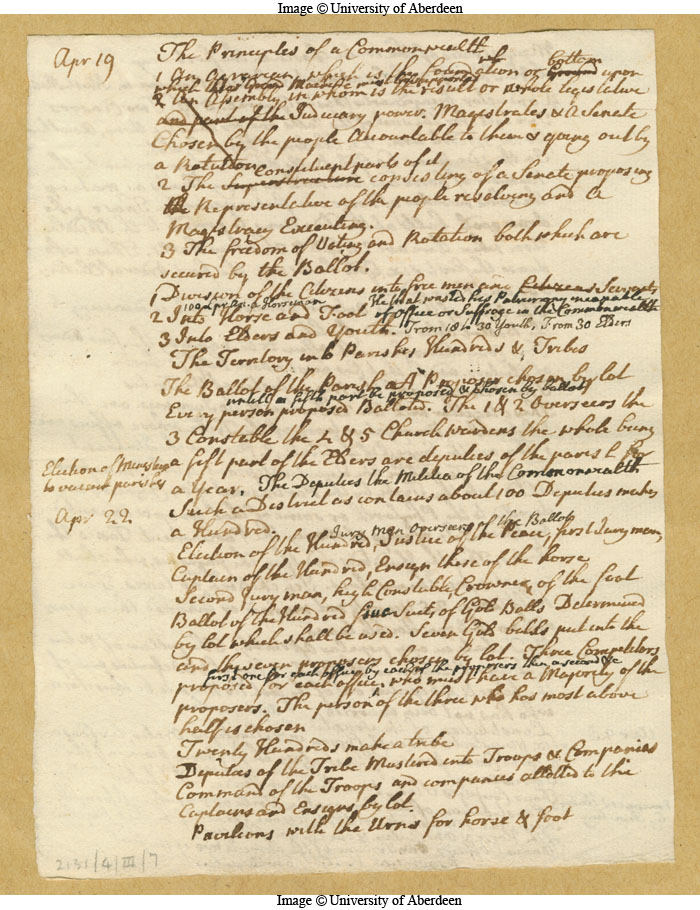 Image © University of Aberdeen
Apr 19
The Principles of a Commonwealth
1 An Agrarian, which is the foundation or bottom Ground upon
which this Great
2 An Assembly in whom is the result or whole legislative
and part of the Judiciary power. Magistrates & a Senate
Chosen by the people Accountable to them & going out by
a Rotation
Constituent parts of it
2 The Superstructure consisting of a Senate proposing
the Representative of the people resolving and a
Magistracy Executing.
3 The freedom of Voting and Rotation both which are
secured by the Ballot.
1 Division of the Citizens into free men and Citizens Servants
100 £ pr An. a Horseman He that wasteth his Patrimony incapable
2 Into Horse and Foot of office or Suffrage in the Commonwealth
3 Into Elders and Youth. From 18 to 30 Youth, From 30 Elders
The Territory into Parishes Hundreds & Tribes
The Ballot of the Parish A Proposer chosen by lot
untill a fifth part be proposed & chosen by ballot
Every person proposed Balloted. The 1 & 2 Overseers the
3 Constable the 4 & 5 Church wardens the whole being
Election of Ministers
to vacant parishes
a fift part of the Elders are deputies of the parish for
a Year. The Deputies the Militia of the Commonwealth
Apr 22
Such a District as contains about 100 Deputies makes
a Hundred.
Jury men overseers of the Ballot
Election of the Hundred, Justice of the Peace, first Jury man,
Captain of the Hundred, Ensign these of the horse
Second Jury man, high Constable, Crowner, of the foot
Ballot of the Hundred Suits of Gold Balls Determined
by lot which shall be used. Seven Gold balls put into the
and by seven proposers chosen by lot. Three Competitors
first one for each office by each of the proposers then a second &c
proposed for each office, who must have a Majority of the
proposers. The person of the three who has most above
half is chosen
Twenty Hundreds make a tribe
Deputies of the Tribe Mustered into Troops & Companies
Command of the Troops and companies allotted to the
Captains and Ensigns by lot.
Pavilions with the Urns for horse & foot
2131/4/III/7
Image © University of Aberdeen